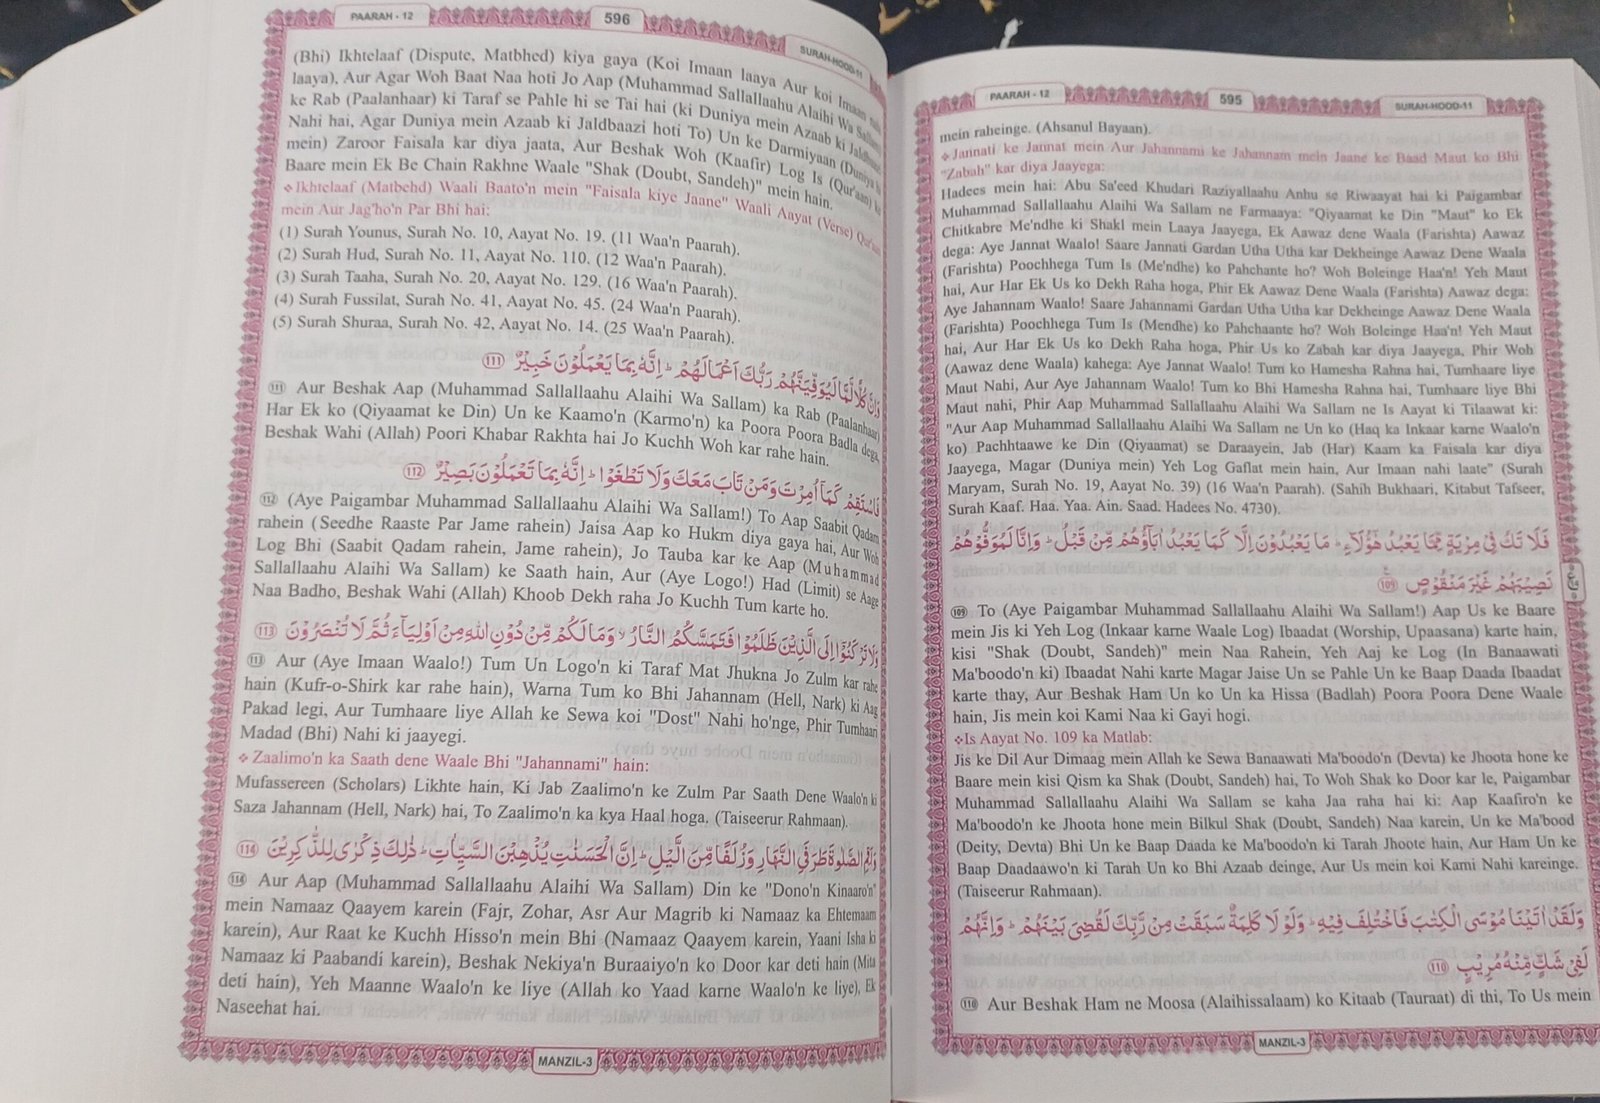 PAARAH - 12
595
SURAH-HOOD-11
mein raheinge. (Ahsanul Bayaan).
❖Jannati ke Jannat mein Aur Jahannami ke Jahannam mein Jaane ke Baad Maut ko Bhi
"Zabah" kar diya Jaayega:
Hadees mein hai: Abu Sa'eed Khudari Raziyallaahu Anhu se Riwaayat hai ki Paigambar
Muhammad Sallallaahu Alaihi Wa Sallam ne Farmaaya: "Qiyaamat ke Din "Maut" ko Ek
Chitkabre Me'ndhe ki Shakl mein Laaya Jaayega, Ek Aawaz dene Waala (Farishta) Aawaz
dega: Aye Jannat Waalo! Saare Jannati Gardan Utha Utha kar Dekheinge Aawaz Dene Waala
(Farishta) Poochhega Tum Is (Me'ndhe) ko Pahchante ho? Woh Boleinge Haa'n! Yeh Maut
hai, Aur Har Ek Us ko Dekh Raha hoga, Phir Ek Aawaz Dene Waala (Farishta) Aawaz dega:
Aye Jahannam Waalo! Saare Jahannami Gardan Utha Utha kar Dekheinge Aawaz Dene Waala
(Farishta) Poochhega Tum Is (Mendhe) ko Pahchaante ho? Woh Boleinge Haa'n! Yeh Maut
hai, Aur Har Ek Us ko Dekh Raha hoga, Phir Us ko Zabah kar diya Jaayega, Phir Woh
(Aawaz dene Waala) kahega: Aye Jannat Waalo! Tum ko Hamesha Rahna hai, Tumhaare liye
Maut Nahi, Aur Aye Jahannam Waalo! Tum ko Bhi Hamesha Rahna hai, Tumhaare liye Bhi
Maut nahi, Phir Aap Muhammad Sallallaahu Alaihi Wa Sallam ne Is Aayat ki Tilaawat ki:
"Aur Aap Muhammad Sallallaahu Alaihi Wa Sallam ne Un ko (Haq ka Inkaar karne Waalo'n
ko) Pachhtaawe ke Din (Qiyaamat) se Daraayein, Jab (Har) Kaam ka Faisala kar diya
Jaayega, Magar (Duniya mein) Yeh Log Gaflat mein hain, Aur Imaan nahi laate" (Surah
Maryam, Surah No. 19, Aayat No. 39) (16 Waa'n Paarah). (Sahih Bukhaari, Kitabut Tafseer,
Surah Kaaf. Haa. Yaa. Ain. Saad. Hadees No. 4730).
فَلَا تَكُ فِیْ مِرْیَةٍ مِّمَّا یَعْبُدُ هٰۤؤُلَآءِ ؕ مَا یَعْبُدُوْنَ اِلَّا كَمَا یَعْبُدُ اٰبَآؤُهُمْ مِّنْ قَبْلُ ؕ وَاِنَّا لَمُوَفُّوْهُمْ
نَصِیْبَهُمْ غَیْرَ مَنْقُوْصٍ ۠ 109
109 To (Aye Paigambar Muhammad Sallallaahu Alaihi Wa Sallam!) Aap Us ke Baare
mein Jis ki Yeh Log (Inkaar karne Waale Log) Ibaadat (Worship, Upaasana) karte hain,
kisi "Shak (Doubt, Sandeh)" mein Naa Rahein, Yeh Aaj ke Log (In Banaawati
Ma'boodo'n ki) Ibaadat Nahi karte Magar Jaise Un se Pahle Un ke Baap Daada Ibaadat
karte thay, Aur Beshak Ham Un ko Un ka Hissa (Badlah) Poora Poora Dene Waale
hain, Jis mein koi Kami Naa ki Gayi hogi.
❖Is Aayat No. 109 ka Matlab:
Jis ke Dil Aur Dimaag mein Allah ke Sewa Banaawati Ma'boodo'n (Devta) ke Jhoota hone ke
Baare mein kisi Qism ka Shak (Doubt, Sandeh) hai, To Woh Shak ko Door kar le, Paigambar
Muhammad Sallallaahu Alaihi Wa Sallam se kaha Jaa raha hai ki: Aap Kaafiro'n ke
Ma'boodo'n ke Jhoota hone mein Bilkul Shak (Doubt, Sandeh) Naa karein, Un ke Ma'bood
(Deity, Devta) Bhi Un ke Baap Daada ke Ma'boodo'n ki Tarah Jhoote hain, Aur Ham Un ke
Baap Daadaawo'n ki Tarah Un ko Bhi Azaab deinge, Aur Us mein koi Kami Nahi kareinge.
(Taiseerur Rahmaan).
وَلَقَدْ اٰتَیْنَا مُوْسَی الْكِتٰبَ فَاخْتُلِفَ فِیْهِ ؕ وَلَوْ لَا كَلِمَةٌ سَبَقَتْ مِنْ رَّبِّكَ لَقُضِیَ بَیْنَهُمْ ؕ وَاِنَّهُمْ
لَفِیْ شَكٍّ مِّنْهُ مُرِیْبٍ 110
110 Aur Beshak Ham ne Moosa (Alaihissalaam) ko Kitaab (Tauraat) di thi, To Us mein
MANZIL-3
PAARAH - 12
596
SURAH-HOOD-11
(Bhi) Ikhtelaaf (Dispute, Matbhed) kiya gaya (Koi Imaan laaya Aur koi Imaan nahi
laaya), Aur Agar Woh Baat Naa hoti Jo Aap (Muhammad Sallallaahu Alaihi Wa Sallam)
ke Rab (Paalanhaar) ki Taraf se Pahle hi se Tai hai (ki Duniya mein Azaab ki Jaldbaazi
Nahi hai, Agar Duniya mein Azaab ki Jaldbaazi hoti To) Un ke Darmiyaan (Duniya
mein) Zaroor Faisala kar diya jaata, Aur Beshak Woh (Kaafir) Log Is (Qur'aan) ke
Baare mein Ek Be Chain Rakhne Waale "Shak (Doubt, Sandeh)" mein hain.
❖Ikhtelaaf (Matbehd) Waali Baato'n mein "Faisala kiye Jaane" Waali Aayat (Verse) Qur'aan
mein Aur Jag'ho'n Par Bhi hai:
(1) Surah Younus, Surah No. 10, Aayat No. 19. (11 Waa'n Paarah).
(2) Surah Hud, Surah No. 11, Aayat No. 110. (12 Waa'n Paarah).
(3) Surah Taaha, Surah No. 20, Aayat No. 129. (16 Waa'n Paarah).
(4) Surah Fussilat, Surah No. 41, Aayat No. 45. (24 Waa'n Paarah).
(5) Surah Shuraa, Surah No. 42, Aayat No. 14. (25 Waa'n Paarah).
وَاِنَّ كُلًّا لَّمَّا لَیُوَفِّیَنَّهُمْ رَبُّكَ اَعْمَالَهُمْ ؕ اِنَّهٗ بِمَا یَعْمَلُوْنَ خَبِیْرٌ 111
111 Aur Beshak Aap (Muhammad Sallallaahu Alaihi Wa Sallam) ka Rab (Paalanhaar)
Har Ek ko (Qiyaamat ke Din) Un ke Kaamo'n (Karmo'n) ka Poora Poora Badla dega,
Beshak Wahi (Allah) Poori Khabar Rakhta hai Jo Kuchh Woh kar rahe hain.
فَاسْتَقِمْ كَمَاۤ اُمِرْتَ وَمَنْ تَابَ مَعَكَ وَلَا تَطْغَوْا ؕ اِنَّهٗ بِمَا تَعْمَلُوْنَ بَصِیْرٌ 112
112 (Aye Paigambar Muhammad Sallallaahu Alaihi Wa Sallam!) To Aap Saabit Qadam
rahein (Seedhe Raaste Par Jame rahein) Jaisa Aap ko Hukm diya gaya hai, Aur Woh
Log Bhi (Saabit Qadam rahein, Jame rahein), Jo Tauba kar ke Aap (Muhammad
Sallallaahu Alaihi Wa Sallam) ke Saath hain, Aur (Aye Logo!) Had (Limit) se Aage
Naa Badho, Beshak Wahi (Allah) Khoob Dekh raha Jo Kuchh Tum karte ho.
وَلَا تَرْكَنُوْۤا اِلَی الَّذِیْنَ ظَلَمُوْا فَتَمَسَّكُمُ النَّارُ ۙ وَمَا لَكُمْ مِّنْ دُوْنِ اللّٰهِ مِنْ اَوْلِیَآءَ ثُمَّ لَا تُنْصَرُوْنَ 113
113 Aur (Aye Imaan Waalo!) Tum Un Logo'n ki Taraf Mat Jhukna Jo Zulm kar rahe
hain (Kufr-o-Shirk kar rahe hain), Warna Tum ko Bhi Jahannam (Hell, Nark) ki Aag
Pakad legi, Aur Tumhaare liye Allah ke Sewa koi "Dost" Nahi ho'nge, Phir Tumhaari
Madad (Bhi) Nahi ki jaayegi.
❖ Zaalimo'n ka Saath dene Waale Bhi "Jahannami" hain:
Mufassereen (Scholars) Likhte hain, Ki Jab Zaalimo'n ke Zulm Par Saath Dene Waalo'n ki
Saza Jahannam (Hell, Nark) hai, To Zaalimo'n ka kya Haal hoga. (Taiseerur Rahmaan).
وَاَقِمِ الصَّلٰوةَ طَرَفَیِ النَّهَارِ وَزُلَفًا مِّنَ الَّیْلِ ؕ اِنَّ الْحَسَنٰتِ یُذْهِبْنَ السَّیِّاٰتِ ؕ ذٰلِكَ ذِكْرٰی لِلذّٰكِرِیْنَ 114
114 Aur Aap (Muhammad Sallallaahu Alaihi Wa Sallam) Din ke "Dono'n Kinaaro'n"
mein Namaaz Qaayem karein (Fajr, Zohar, Asr Aur Magrib ki Namaaz ka Ehtemaam
karein), Aur Raat ke Kuchh Hisso'n mein Bhi (Namaaz Qaayem karein, Yaani Isha ki
Namaaz ki Paabandi karein), Beshak Nekiya'n Buraaiyo'n ko Door kar deti hain (Mita
deti hain), Yeh Maanne Waalo'n ke liye (Allah ko Yaad karne Waalo'n ke liye), Ek
Naseehat hai.
MANZIL-3